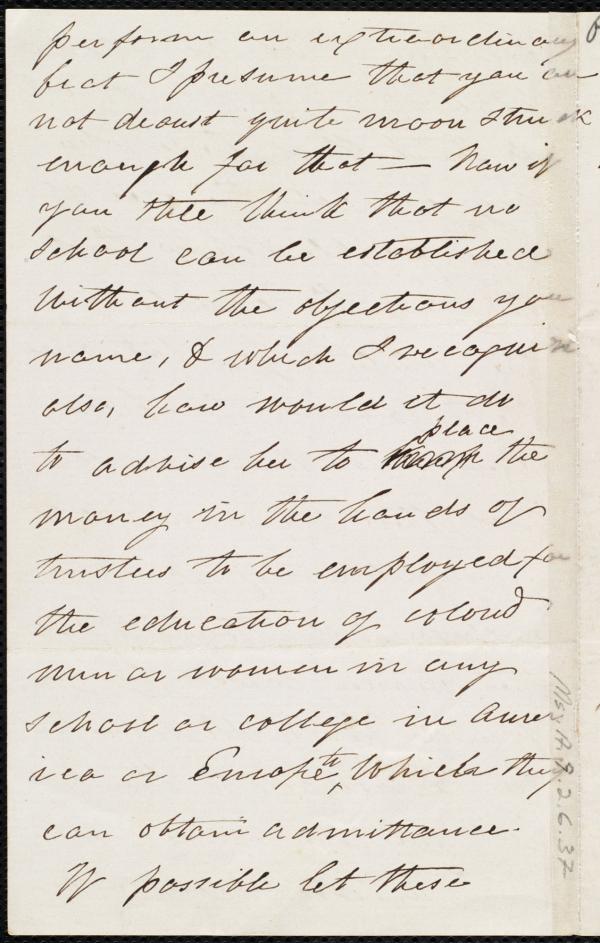 perform an extraordinary
feat I presume that you are
not deaust quite moon struck
enough for that — Now if
you still think that no
school can be established
without the objections you
name, & which I recogni ze
also, how would it do
place
to advise her to the
money in the hands of
trustees to be employed for
the education of colored
men or women in any
school or college in Amer
ica or Europe, to which they
can obtain admittance.
If possible let these
Ms. A. 9. 2. 6. 37